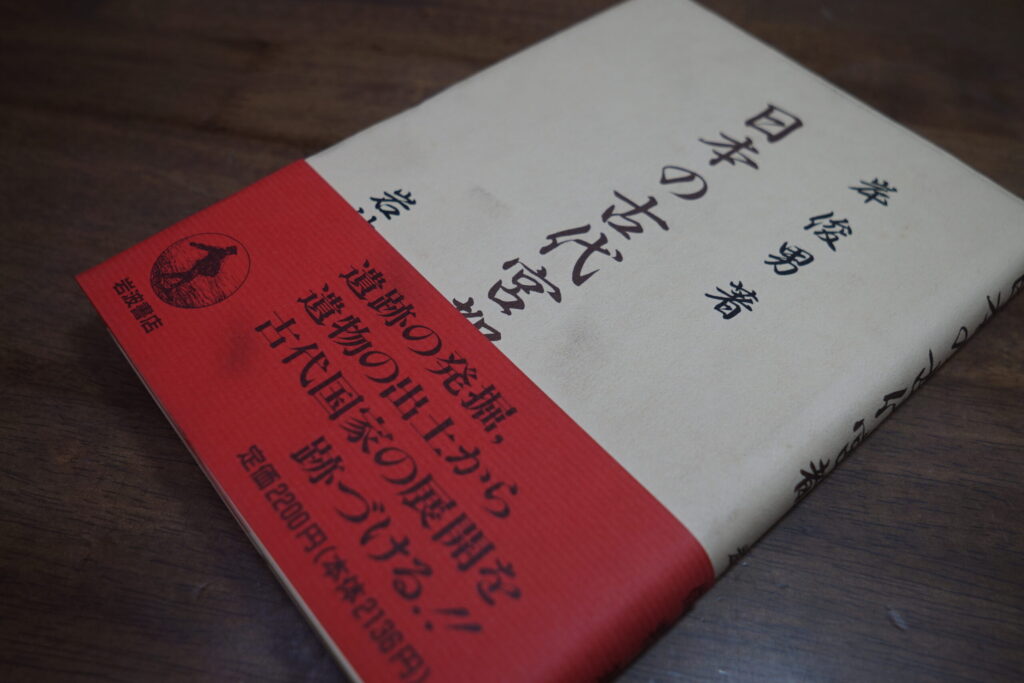 岸俊男著
日本の古代宮
岩
遺跡の発掘,
遺物の出土から
古代国家の展開を
跡づける.!!
定価2200円(本体2136円)
岩波書店